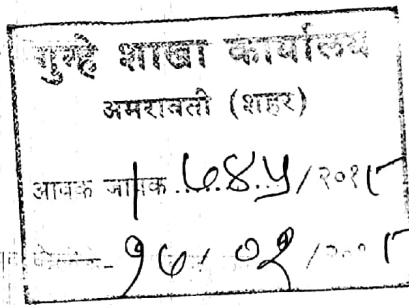 गुन्हे शाखा कार्यालय
अमरावती (शहर)
आवक जावक ७४५/२०१८
१७/०१/२०१८